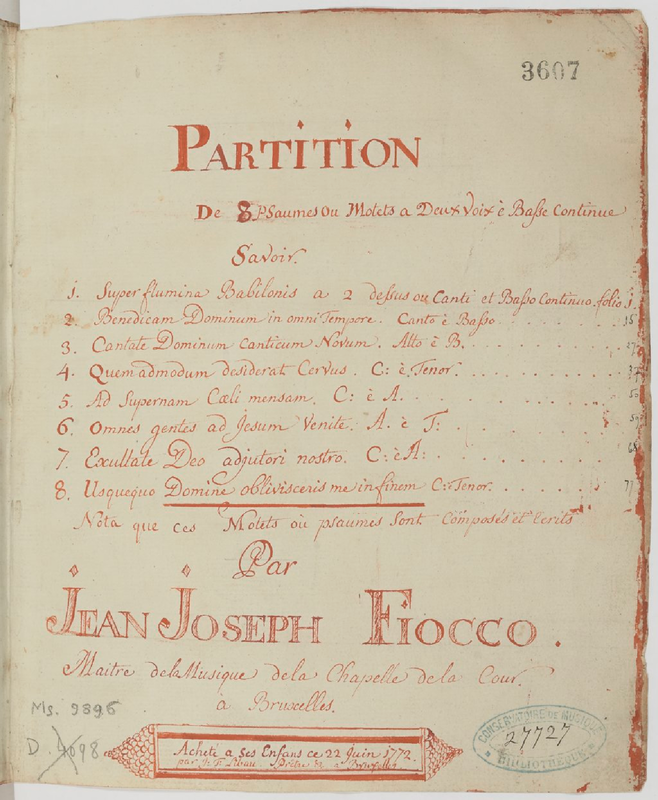 3607
PARTITION
De 8 Psaumes ou Motets a Deux Voix è Basse Continue
Savoir.
1. Super flumina Babilonis a 2 dessus ou Canti et Basso Continuo. folio 1.
2. Benedicam Dominum in omni Tempore. Canto è Basso . . . . . . . . 15
3. Cantate Dominum canticum Novum. Alto è B. . . . . . . . . . 27
4. Quemadmodum desiderat Cervus. C: è Tenor. . . . . . . . . . 37
5. Ad Supernam Cæli mensam. C: è A. . . . . . . . . . 50
6. Omnes gentes ad Jesum Venite. A. è T: . . . . . . . . .
7. Exultate Deo adjutori nostro. C: è A: . . . . . . . . .
8. Usquequo Domine oblivisceris me in finem C: è Tenor. . . . . . . . 77
Nota que ces Motets ou psaumes Sont Composés et Ecrits
Par
JEAN JOSEPH FIOCCO.
Maitre de la Musique de la Chapelle de la Cour.
a Bruxelles.
Ms. 9396
D. 98
Acheté a Ses Enfans ce 22 Juin 1772.
par J. F. Libau Prêtre & a Bruxelles
CONSERVATOIRE DE MUSIQUE
27727
BIBLIOTHÈQUE